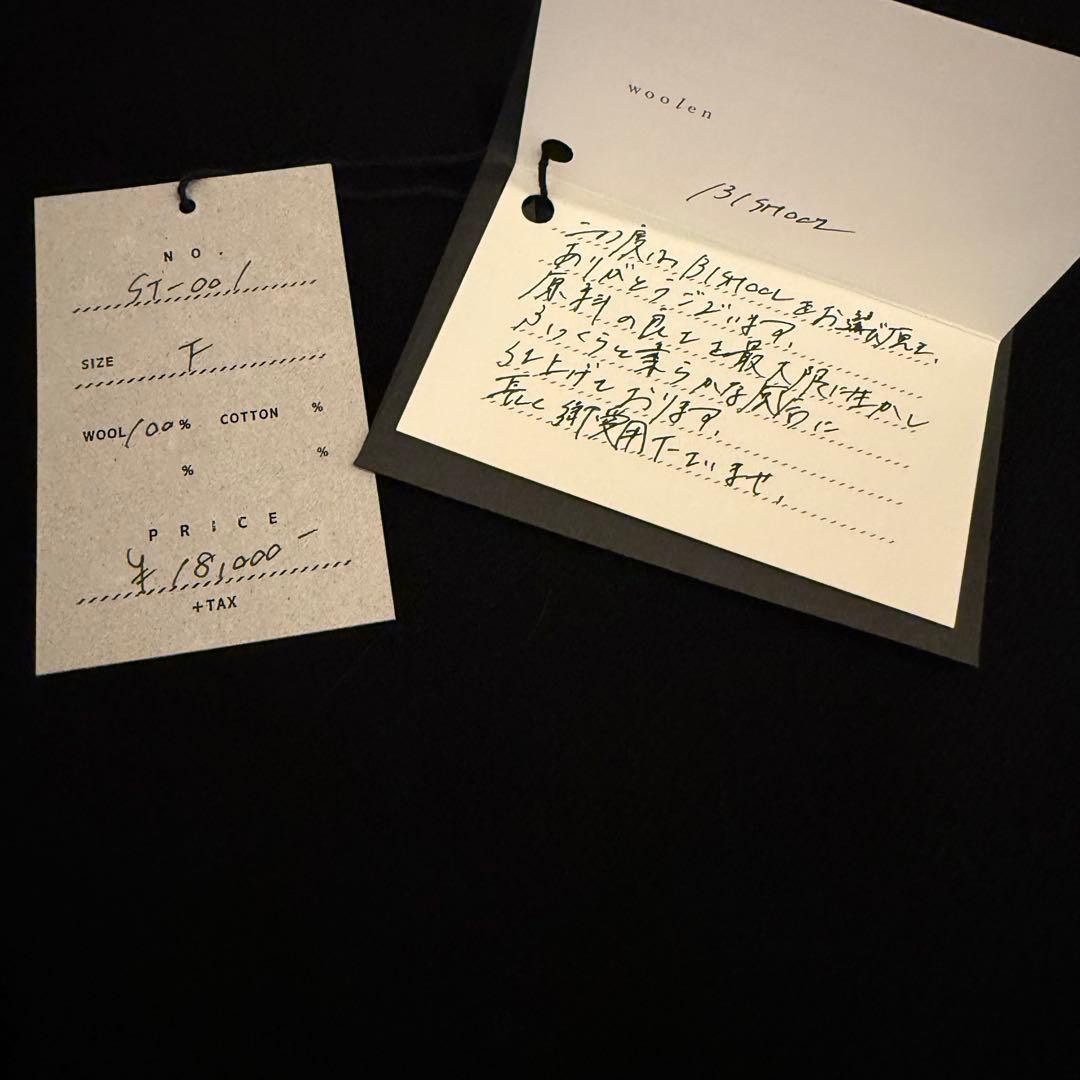 NO.
ST-001
SIZE F
WOOL 100% COTTON %
% %
PRICE
¥18,000-
+TAX
woolen
BISHOOL
この度は BISHOOL をお選び頂き、
ありがとうございます。
原料の良さを最大限に生かし
ふっくらと柔らかな風合に
仕上げております。
長く御愛用下さいませ。